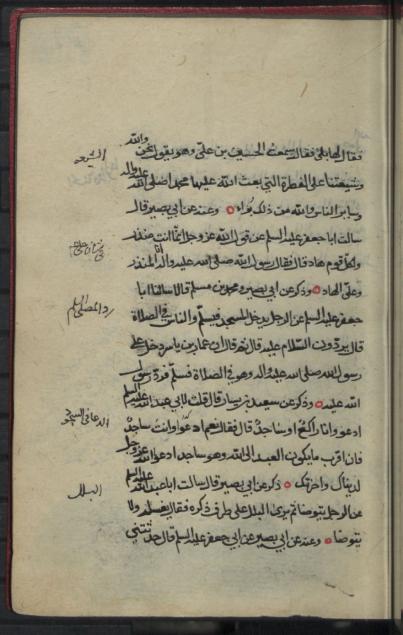 فقال لها بلى فقال سمعت الحسين بن علي وهو يقول نحن والله
وشيعتنا على الفطرة التي بعث الله عليها محمد صلى الله عليه واله
وساير الناس والله من ذلك براء وعنه عن ابي بصير قال
سالت ابا جعفر عليه السلم عن قول الله عز وجل انما انت منذر
ولكل قوم هاد قال فقال رسول الله صلى الله عليه واله انا المنذر
وعلي الهاد وذكر عن ابي بصير ومحمد بن مسلم قالا سالنا ابا
جعفر عليه السلم عن الرجل يدخل المسجد فيسلم والناس في الصلاة
قال يردون السلام عليه قال ثم قال ان عمار بن ياسر دخل على
رسول الله صلى الله عليه واله وهو في الصلاة فسلم فرد رسول
الله عليه وذكر عن سعيد بن يسار قال قلت لابي عبد الله عليه السلم
ادعو وانا راكع او ساجد قال فقال نعم ادعو وانت ساجد
فان اقرب ما يكون العبد الى الله وهو ساجد ادعوا الله عز وجل
لدنياك واخرتك ذكر عن ابي بصير قال سالت ابا عبد الله عليه السلم
عن الرجل يتوضا ثم يرى البلل على طرف ذكره فقال يغسله ولا
يتوضا وعنه عن ابي بصير عن ابي جعفر عليه السلم قال حدثتني
الشيعه
رد المصلي السلم
الدعا في السجود
البلل